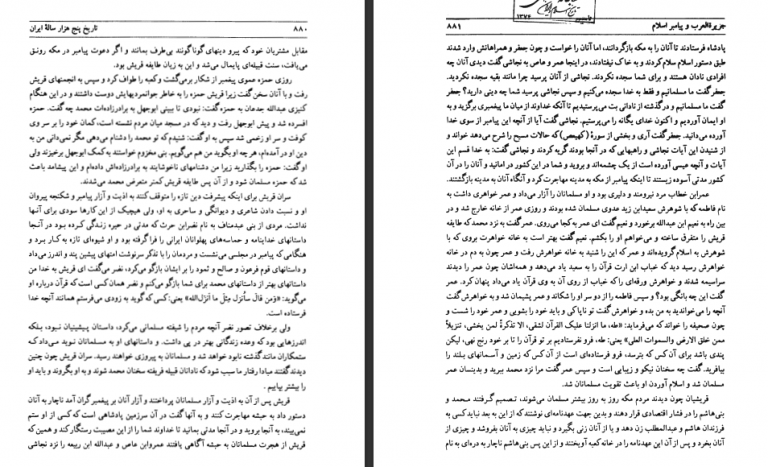 ۸۸۰ تاریخ پنج هزار سالۀ ایران
مقابل مشتریان خود که پیرو دینهای گوناگونند بی‌طرف بمانند و اگر دعوت پیامبر در مکه رونق
می‌یافت، سنت قبیله‌ای پایمال می‌شد و این به زیان طایفه قریش بود.
روزی حمزه عموی پیغمبر از شکار برمی‌گشت وکعبه را طواف کرد و سپس به انجمنهای قریش
رفت و با آنان سخن گفت زیرا قریش حمزه را به خاطر جوانمردیهایش دوست داشتند و در این هنگام
کنیزی عبدالله جدعان به حمزه گفت: نبودی تا ببینی ابوجهل به برادرزاده‌ات محمد چه گفت. حمزه
افسرده شد و پیش ابوجهل رفت و دید که در مسجد میان مردم نشسته است، کمان خود را بر سر وی
کوفت و سر او زخمی شد سپس به او گفت: شنیدم که تو محمد را دشنام می‌دهی مگر نمی‌دانی من به
دین او در آمده‌ام، هر چه او بگوید من هم می‌گویم. بنی مخزوم خواستند به کمک ابوجهل برخیزند ولی
او گفت: حمزه را بگذارید زیرا من دشنامهای ناخوشایند به برادرزاده‌اش داده‌ام و این پیشامد باعث
شد که حمزه مسلمان شود و از آن پس طایفه قریش کمتر متعرض محمد می‌شدند.
سران قریش برای اینکه پیشرفت دین تازه را متوقف کنند به اذیت و آزار پیامبر و شکنجه پیروان
او و نسبت دادن شاعری و دیوانگی و ساحری به او، ولی هیچیک از این کارها سودی برای آنها
نداشت. مردی از بنی عبدمناف به نام نضربن حرث که مدتی در حیره زندگی کرده بود در آنجا
داستانهای خداینامه و حماسه‌های پهلوانان ایرانی را فرا گرفته بود و او شیوه‌ای تازه به کار برد و
هنگامی که پیامبر در مجلسی می‌نشست و مردمان را با تذکر سرنوشت امتهای پیشین پند و اندرز می‌داد
و داستانهای قوم فرعون و صالح و ثمود را بر ایشان بازگو می‌کرد، نضر می‌گفت ای قریش به خدا من
داستانهای بهتر از داستانهای محمد برای شما بازگو می‌کنم و نضر همان کسی است که قرآن درباره او
می‌گوید: «وَمَن قالَ سَأنزِلُ مِثلَ ما أنزَلَ‌الله» یعنی: کس که گوید به زودی می‌فرستم همانند آنچه خدا
فرستاده است.
ولی برخلاف تصور نضر آنچه مردم را شیفته مسلمانی می‌کرد، داستان پیشینیان نبود، بـلکه
اندرزهایی بود که وعده زندگانی بهتر در پی داشت. و داستانهای او به مسلمانان نوید می‌داد کـه
ستمکاران مانند گذشته نابود خواهد شد و مسلمانان به پیروزی خواهند رسید. سران قریش چون چنین
دیدند گفتند مبادا رفتار ما سبب شود که نادانان قبیله فریفته سخنان محمد شوند و به او بگروند و باید او
را بیشتر بیابیم.
قریش پس از آن به اذیت و آزار مسلمانان پرداختند و آزار آنان بر پیغمبر گران آمد ناچار به آنان
دستور داد به حبشه مهاجرت کنند و به آنها گفت در آن سرزمین پادشاهی است که کسی از او ستم
نمی‌بیند، به آنجا بروید و در آنجا مدتی بمانید تا خداوند شما را از این مصیبت رستگار کند و همین که
قریش از هجرت مسلمانان به حبشه آگاهی یافتند عمروابن عاص و عبدالله ابن ربیعه را نزد نجاشی
جزیرةالعرب و پیامبر اسلام ۸۸۱
۱۳۷۶
پادشاه فرستادند تا آنان را به مکه بازگردانند، اما آنان را خواست و چون جعفر و همراهانش وارد شدند
طبق دستور اسلام سلام کردند و به خاک نیفتادند، در اینجا عمر و عاص به نجاشی گفت دیدی آنان چه
افرادی نادان هستند و برای شما سجده نکردند. نجاشی از آنان پرسید چرا مانند بقیه سجده نکردید.
جعفر گفت ما مسلمانیم و فقط به خدا سجده می‌کنیم و سپس نجاشی پرسید شما چه دینی دارید؟ جعفر
گفت ما مسلمانیم و درگذشته از نادانی بت می‌پرستیدیم تا آنکه خداوند از میان ما پیغمبری برگزید و به
او ایمان آوردیم و اکنون خدای یگانه را می‌پرستیم. نجاشی گفت آیا از آنچه این پیامبر از سوی خدا
آورده می‌دانید. جعفر گفت آری و بخشی از سورۀ (کهیعص) که حالات مسیح را شرح می‌دهد خواند و
از شنیدن این آیات نجاشی و راهبهایی که در آنجا بودند گریه کردند و نجاشی گفت: به خدا قسم این
آیات و آنچه عیسی آورده است از یک چشمه‌اند و بروید و شما در این کشور در امانید و آنان را در آن
کشور مدتی آسوده زیستند تا اینکه پیامبر از مکه به مدینه مهاجرت کرد و آنگاه آنان به مدینه بازگشتند.
عمرابن خطاب مرد نیرومند و دلیری بود و او مسلمانان را آزار می‌داد و عمر خواهری داشت به
نام فاطمه که با شوهرش سعیدابن زید عدوی مسلمان شده بودند و روزی عمر از خانه خارج شد و در
بین راه به نعیم ابن عبدالله برخورد و نعیم گفت ای عمر به کجا می‌روی. عمر گفت به نزد محمد که طایفه
قریش را متفرق ساخته و می‌خواهم او را بکشم. نعیم گفت بهتر است به خانه خواهرت بروی که با
شوهرش به اسلام گرویده‌اند و عمر که این را شنید به خانه خواهرش رفت و عمر چون به دم در خانه
خواهرش رسید دید که خباب ابن ارت قرآن را به سعید یاد می‌دهد و همه‌اشان چون عمر را دیدند
سراسیمه شدند و خواهرش ورقه‌ای را که خباب از روی آن به وی قرآن یاد می‌داد پنهان کرد. عمر
گفت این چه بانگی بود؟ و سپس فاطمه را از دو سر او را شکاند و عمر پشیمان شد و به خواهرش گفت
آنچه را می‌خواندید به من بده و خواهرش گفت تو ناپاکی و باید خود را بشویی و عمر خود را شست و
چون صحیفه را خواند که می‌فرماید: «طه، ما انزلنا علیک القرآن لتشقی، الا تذکرةً لمن یخشی، تنزیلاً
ممن خلق الارض والسموات العلی» یعنی: طه، فرو نفرستادیم بر تو قرآن را تا بر خود رنج نهی، لیکن
پندی باشد برای آن کس که بترسد، فرو فرستاده‌ای است از آن کس که زمین و آسمانهای بـلند را
بیافرید. گفت چه سخنان نیکو و زیبایی است و سپس عمر گفت مرا نزد محمد ببرید و بدینسان عمر
مسلمان شد و اسلام آوردن او باعث تقویت مسلمانان شد.
قریشیان چون دیدند مردم مکه روز به روز بیشتر مسلمان می‌شوند، تـصمیم گرفتند محمد و
بنی‌هاشم را در فشار اقتصادی قرار دهند و بدین جهت عهدنامه‌ای نوشتند که از این به بعد نباید کسی به
فرزندان هاشم و عبدالمطلب زن دهد و یا از آنان زنی بگیرد و نباید چیزی به آنان بفروشد و چیزی از
آنان بخرد و پس از آن این عهدنامه را در خانه کعبه آویختند و از این پس بنی‌هاشم ناچار به دره‌ای به نام